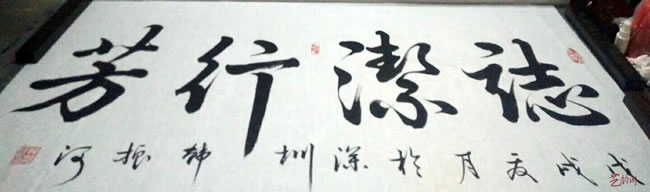 誌潔行芳
戊戌夏月於深圳韩振河